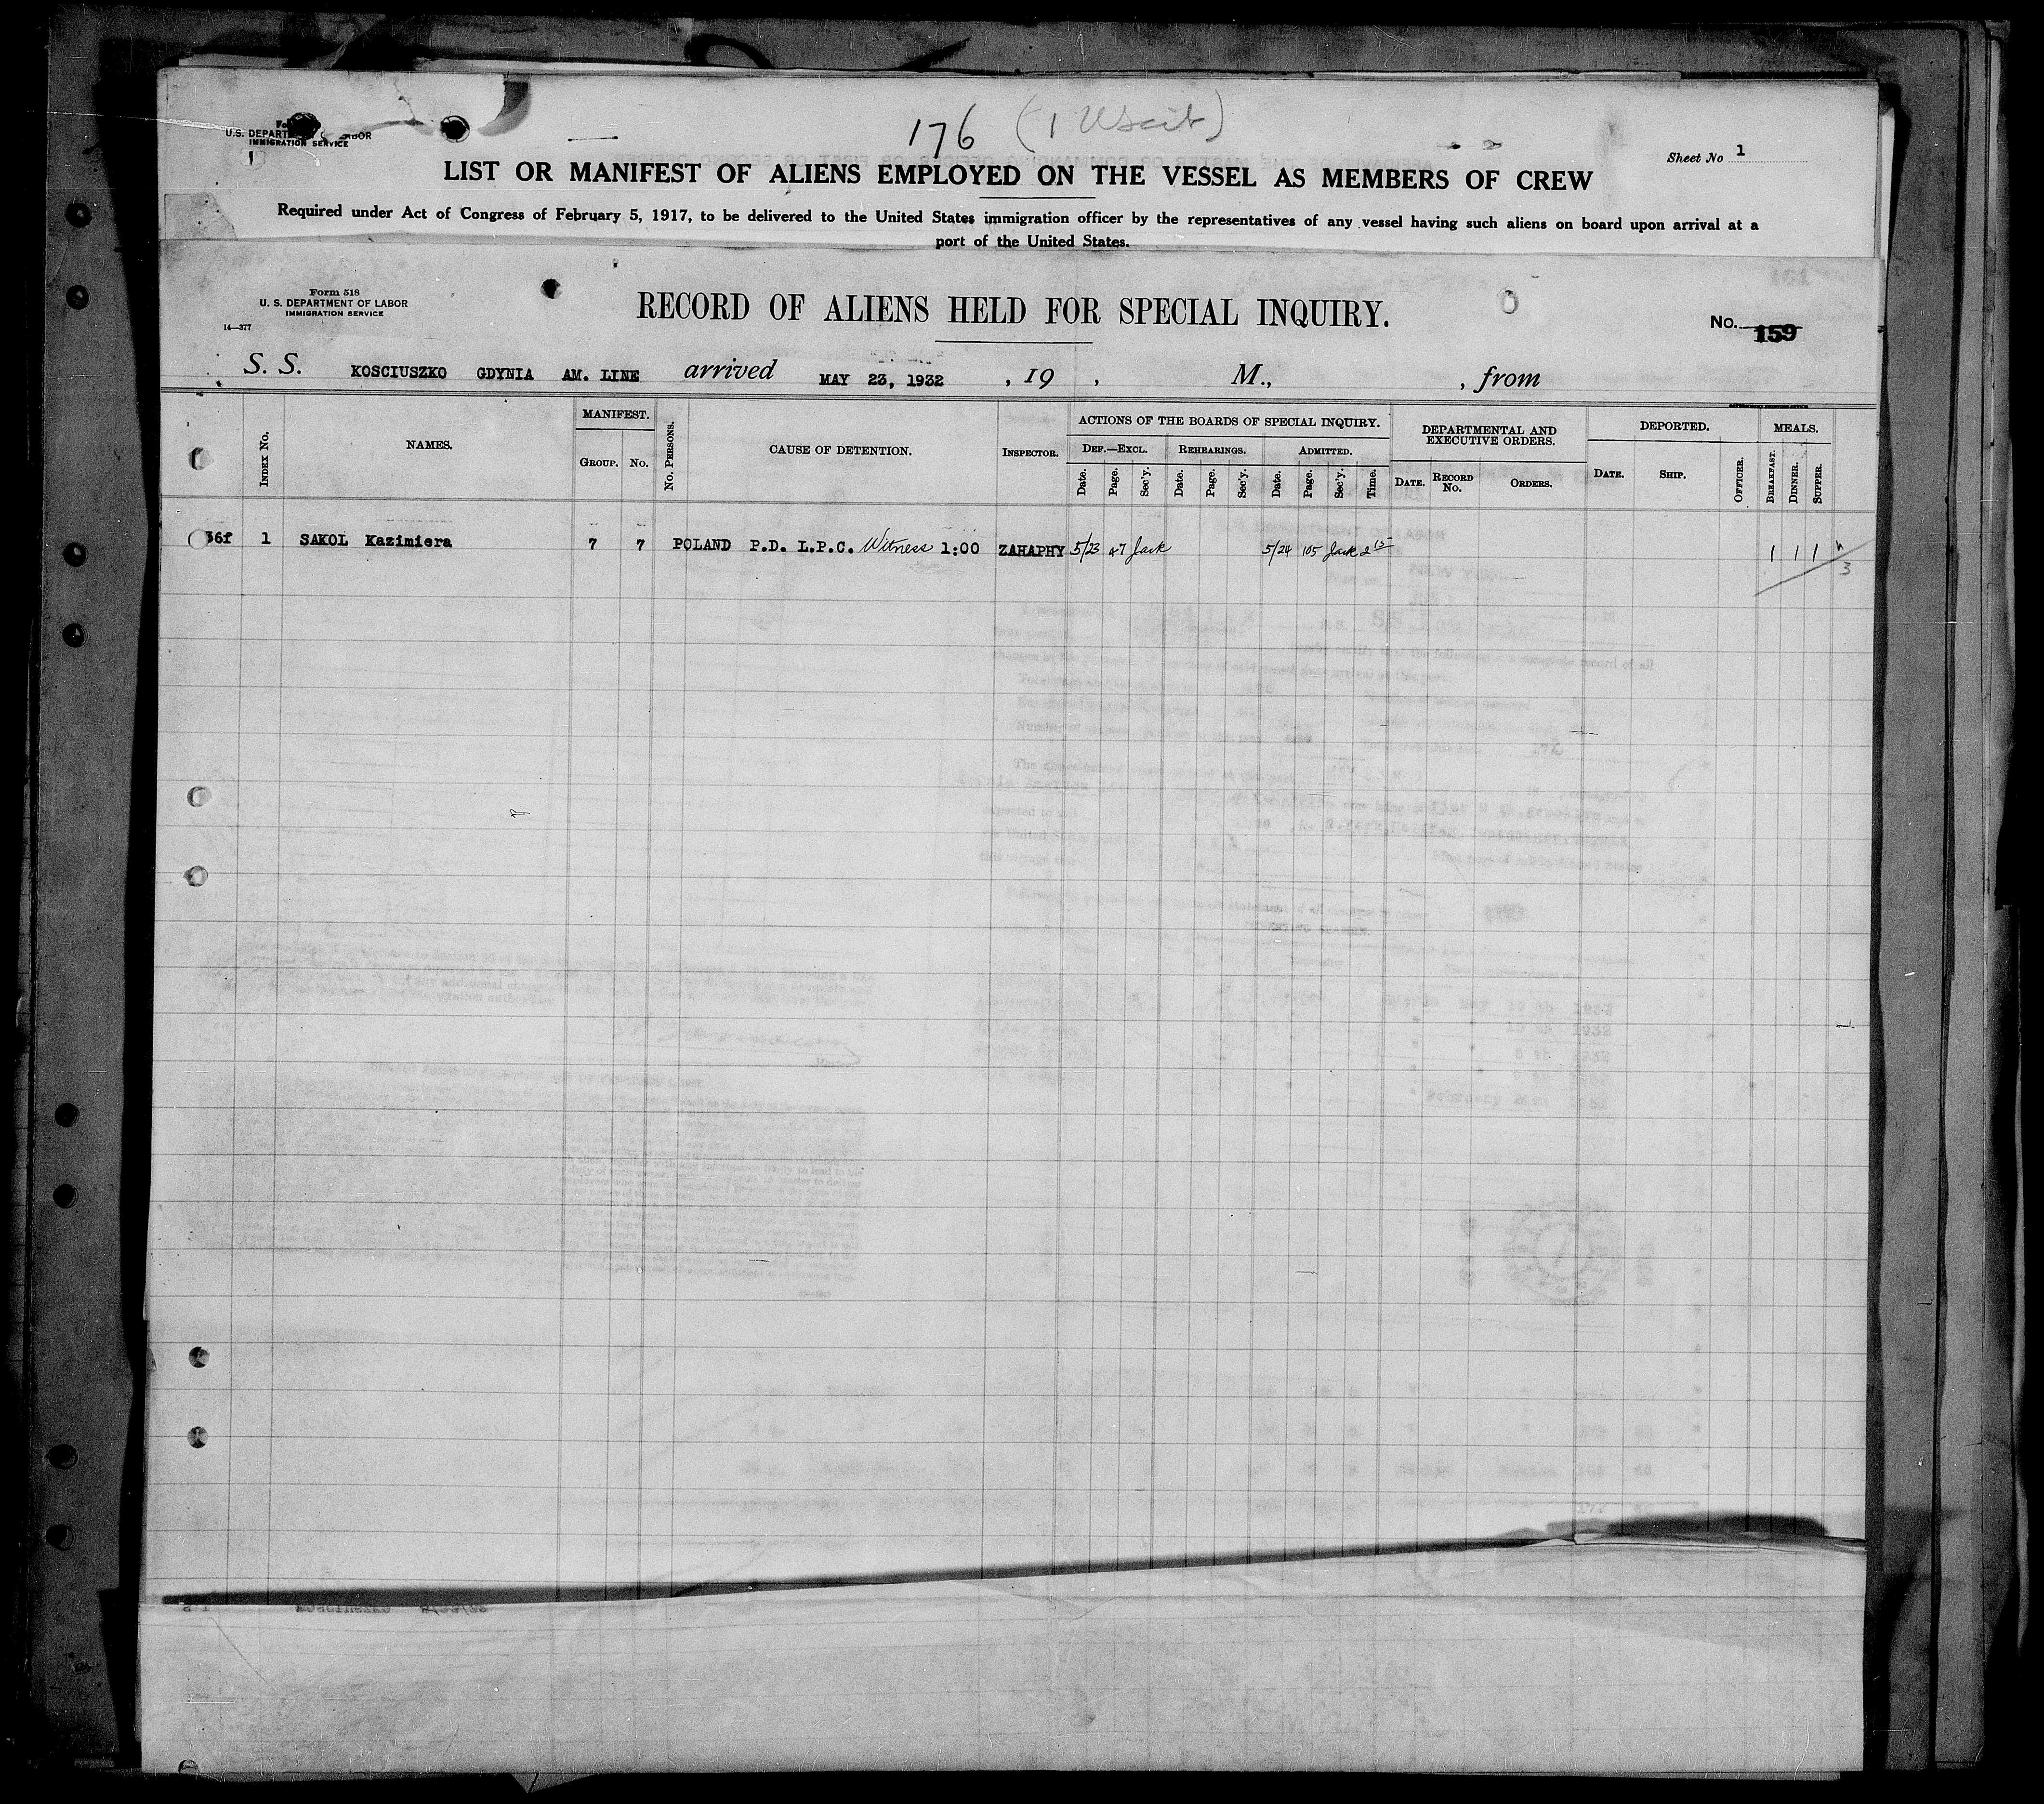 176 (1 UScit)
U.S. DEPARTMENT OF LABOR
IMMIGRATION SERVICE
Sheet No 1
LIST OR MANIFEST OF ALIENS EMPLOYED ON THE VESSEL AS MEMBERS OF CREW
Required under Act of Congress of February 5, 1917, to be delivered to the United States immigration officer by the representatives of any vessel having such aliens on board upon arrival at a
port of the United States.
Form 518
U. S. DEPARTMENT OF LABOR
IMMIGRATION SERVICE
14—377
RECORD OF ALIENS HELD FOR SPECIAL INQUIRY.
No. 159
S. S. KOSCIUSZKO GDYNIA AM. LINE arrived MAY 23, 1932 , 19 , M., , from
INDEX No. NAMES. MANIFEST. GROUP. No. No. PERSONS. CAUSE OF DETENTION. INSPECTOR.
ACTIONS OF THE BOARDS OF SPECIAL INQUIRY.
DEF.—EXCL. REHEARINGS. ADMITTED.
Date. Page. Sec'y. Date. Page. Sec'y. Date. Page. Sec'y. Time.
DEPARTMENTAL AND
EXECUTIVE ORDERS.
DATE. RECORD No. ORDERS.
DEPORTED.
DATE. SHIP. OFFICER.
MEALS.
BREAKFAST. DINNER. SUPPER.
36f 1 SAKOL Kazimiera 7 7 POLAND P.D. L.P.C. Witness 1:00 ZAHAPHY 5/23 47 Jack 5/24 105 Jack 2 15 1 1 1
3